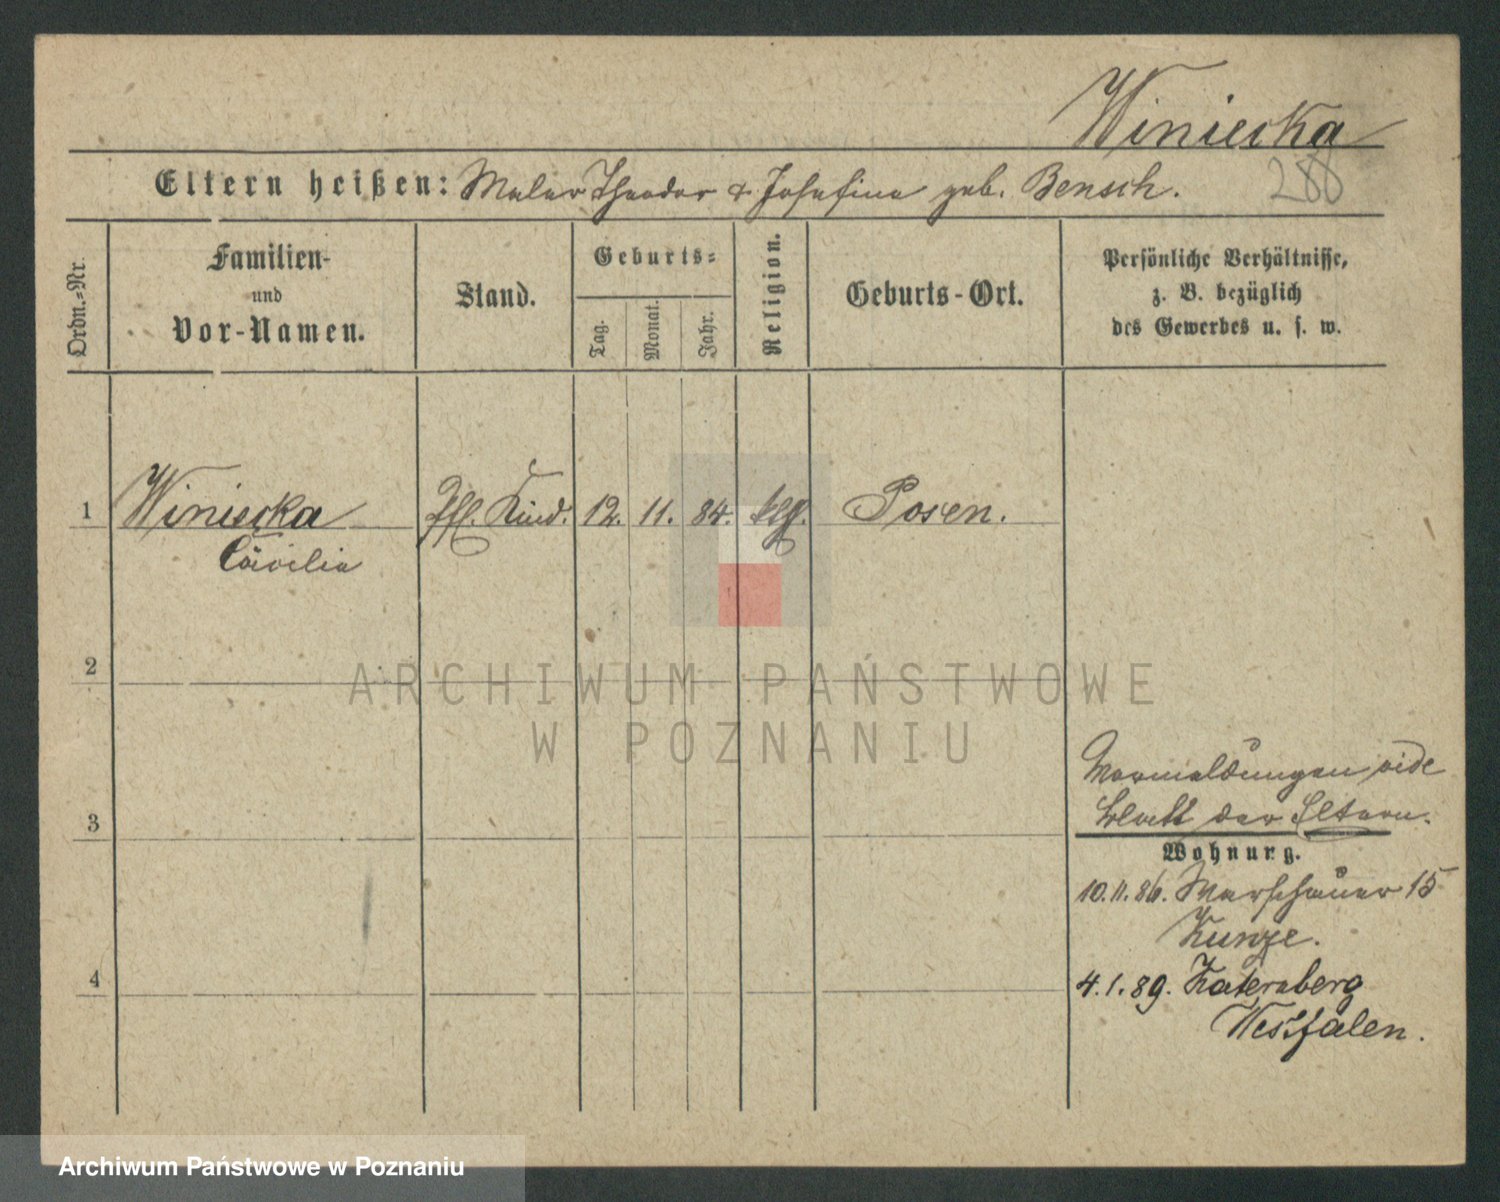 Winiecka
288
Eltern heißen: Maler Theodor & Josefine geb. Bensch.
Ordn.=Nr.
Familien-
und
Vor-Namen.
Stand.
Geburts=
Tag.
Monat.
Jahr.
Religion.
Geburts-Ort.
Persönliche Verhältnisse,
z. B. bezüglich
des Gewerbes u. s. w.
1 Winiecka Pfl. Kind. 12. 11. 84. Posen.
Cäcilie
2
ARCHIWUM PAŃSTWOWE
W POZNANIU
vide
3 Blatt der Eltern.
Wohnung.
10.11.86. 15
Kunze.
4
4.1.89. Katernberg
Westfalen.
Archiwum Państwowe w Poznaniu